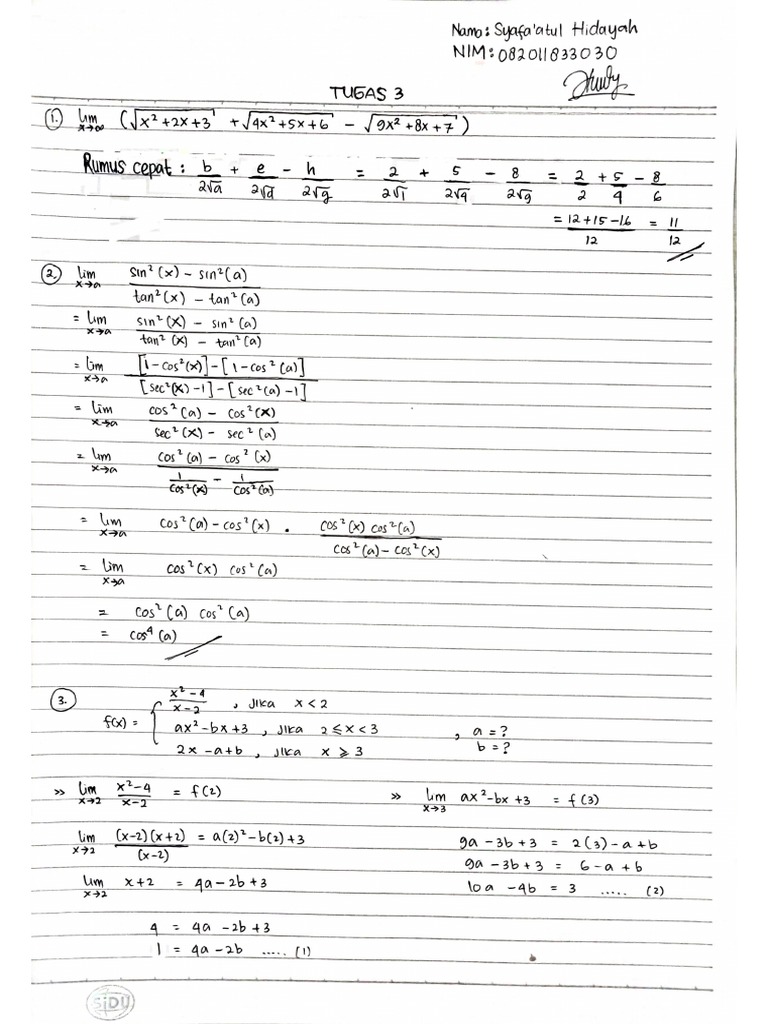 Nama: Syafa'atul Hidayah
NIM: 082011833030
TUGAS 3
1. lim x→∞ (√(x² + 2x + 3) + √(4x² + 5x + 6) − √(9x² + 8x + 7))
Rumus cepat : b/(2√a) + e/(2√d) − h/(2√g) = 2/(2√1) + 5/(2√4) − 8/(2√9) = 2/2 + 5/4 − 8/6
= (12 + 15 − 16)/12 = 11/12
2. lim x→a (sin²(x) − sin²(a))/(tan²(x) − tan²(a))
= lim x→a (sin²(x) − sin²(a))/(tan²(x) − tan²(a))
= lim x→a ([1 − cos²(x)] − [1 − cos²(a)])/([sec²(x) − 1] − [sec²(a) − 1])
= lim x→a (cos²(a) − cos²(x))/(sec²(x) − sec²(a))
= lim x→a (cos²(a) − cos²(x))/(1/cos²(x) − 1/cos²(a))
= lim x→a cos²(a) − cos²(x) . (cos²(x) cos²(a))/(cos²(a) − cos²(x))
= lim x→a cos²(x) cos²(a)
= cos²(a) cos²(a)
= cos⁴(a)
3. f(x) = { (x² − 4)/(x − 2) , jika x < 2
ax² − bx + 3 , jika 2 ≤ x < 3 , a = ?
2x − a + b , jika x ≥ 3 b = ?
>> lim x→2 (x² − 4)/(x − 2) = f(2)
lim x→2 ((x−2)(x+2))/(x−2) = a(2)² − b(2) + 3
lim x→2 x + 2 = 4a − 2b + 3
4 = 4a − 2b + 3
1 = 4a − 2b ..... (1)
>> lim x→3 ax² − bx + 3 = f(3)
9a − 3b + 3 = 2(3) − a + b
9a − 3b + 3 = 6 − a + b
10a − 4b = 3 ..... (2)
SiDU